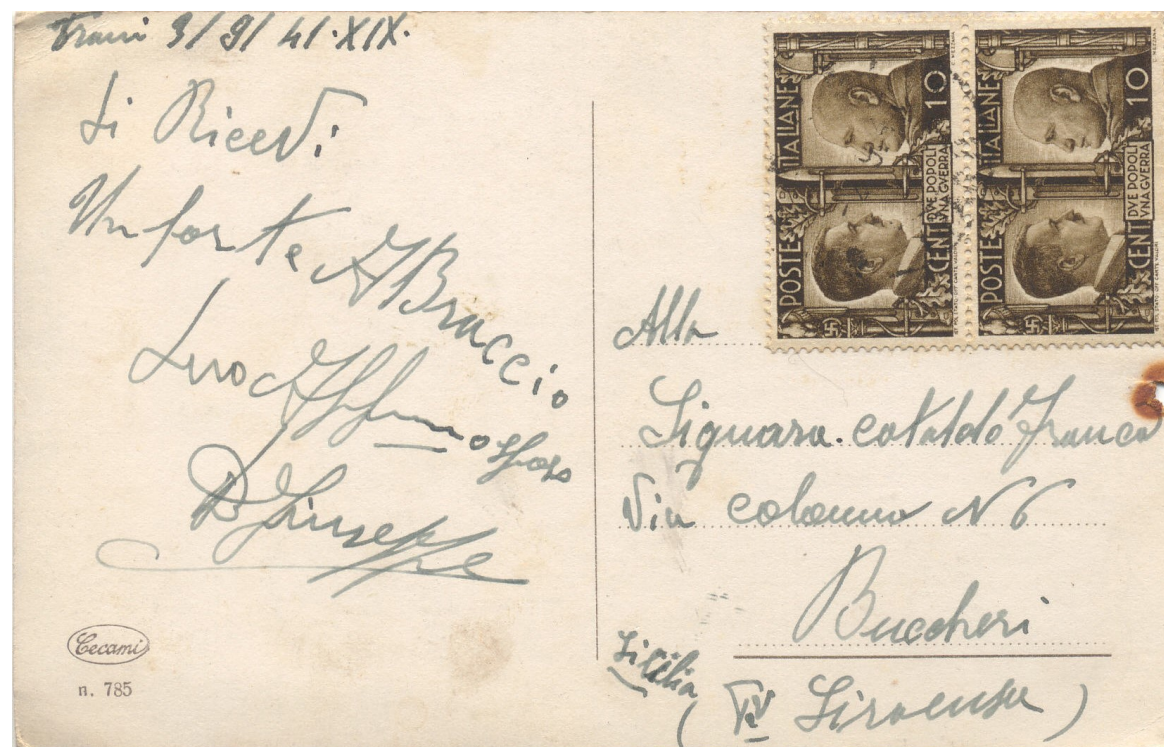 Trani 9/9/41·XIX·
Si Ricevi
Un forte ABraccio
Tuo Aff mo sposo
D Giuseppe
Cecami
n. 785
POSTE ITALIANE
CENT 10
DVE POPOLI
VNA GVERRA
POSTE ITALIANE
CENT 10
DVE POPOLI
VNA GVERRA
Alla
Signora. Cataldo Franca
Via Colonna N 6
Buccheri
Sicilia
(Siracusa)